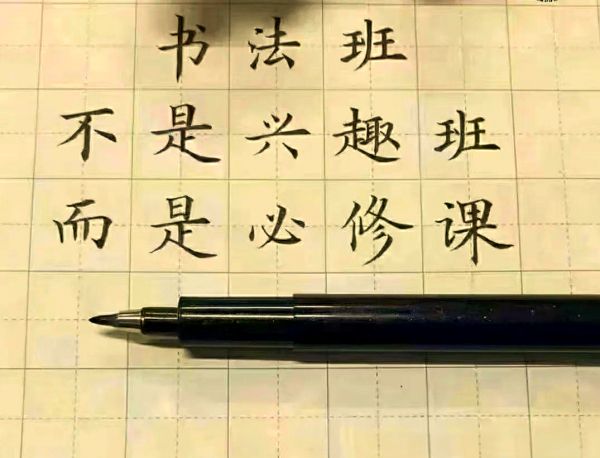 书法班
不是兴趣班
而是必修课